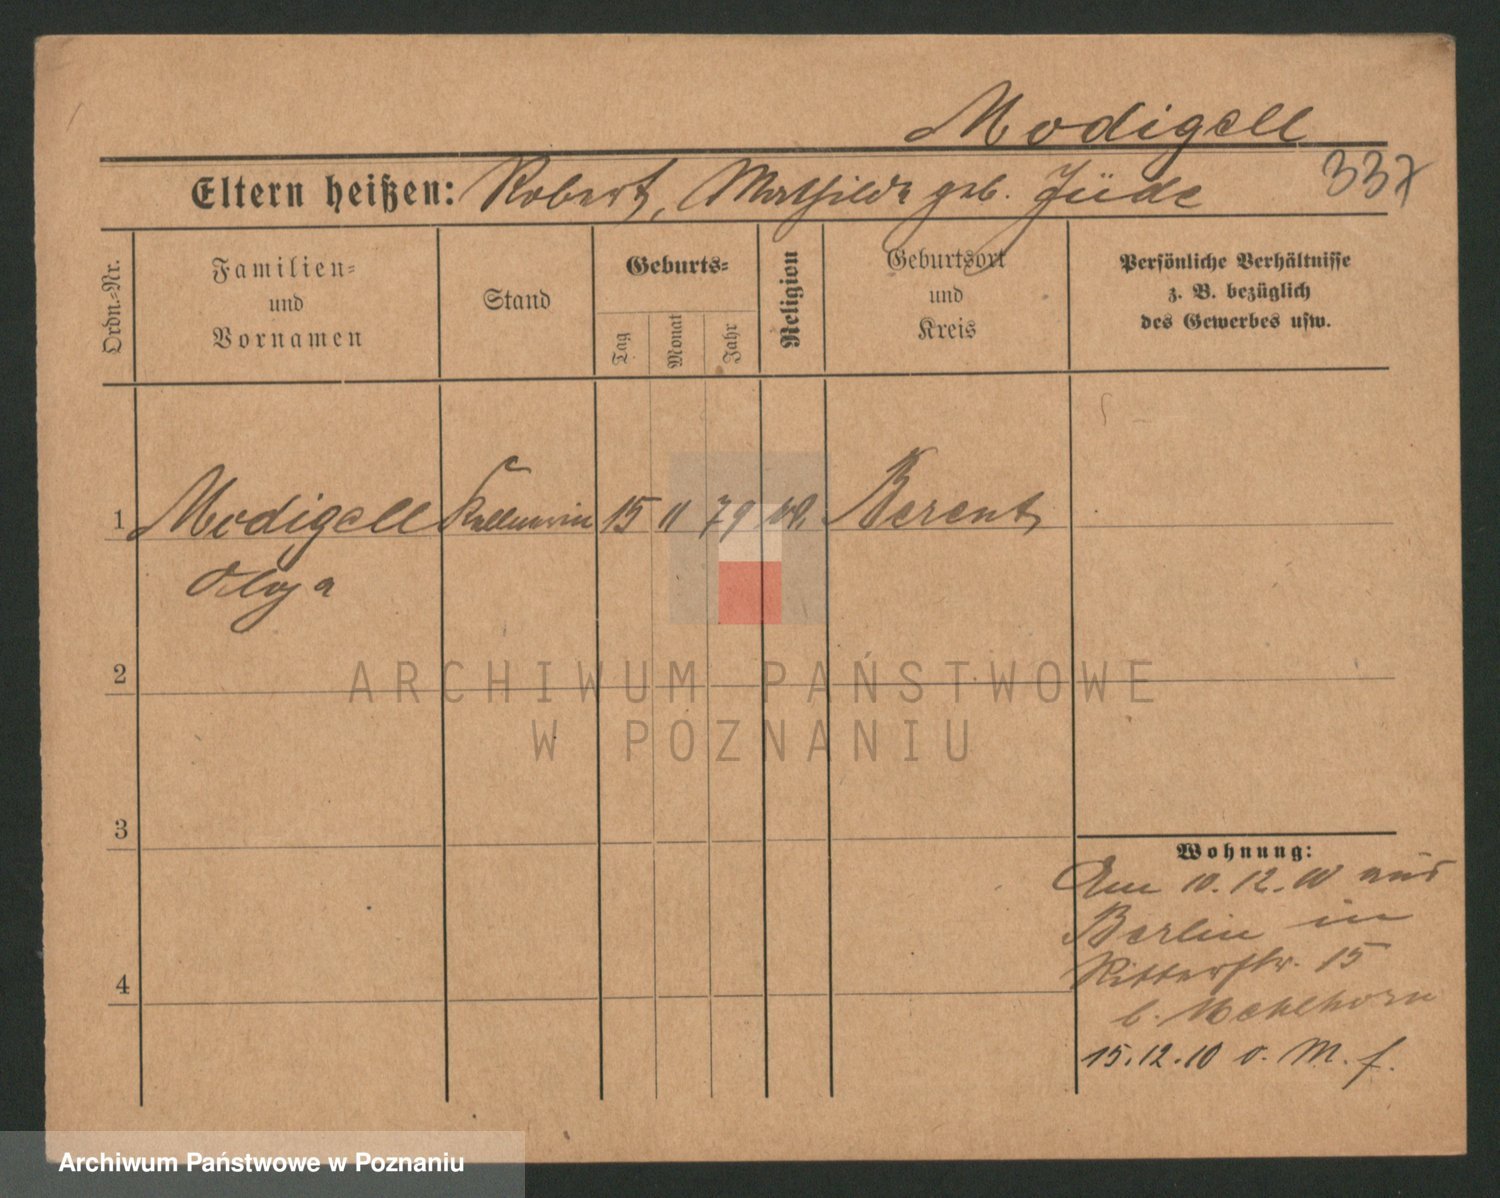 Modigell
337
Eltern heißen: Robert, Mathilde geb. Jüde
Ordn.-Nr.
Familien-
und
Vornamen
Stand
Geburts-
Tag
Monat
Jahr
Religion
Geburtsort
und
Kreis
Persönliche Verhältnisse
z. B. bezüglich
des Gewerbes usw.
1 Modigell Kellnerin 15 11 79 Berent
Olga
2
3
4
Wohnung:
Am 10.12.10 aus
Berlin in
Ritterstr. 15
b. Mehlhorn
15.12.10 o. M. f.
ARCHIWUM PAŃSTWOWE
W POZNANIU
Archiwum Państwowe w Poznaniu